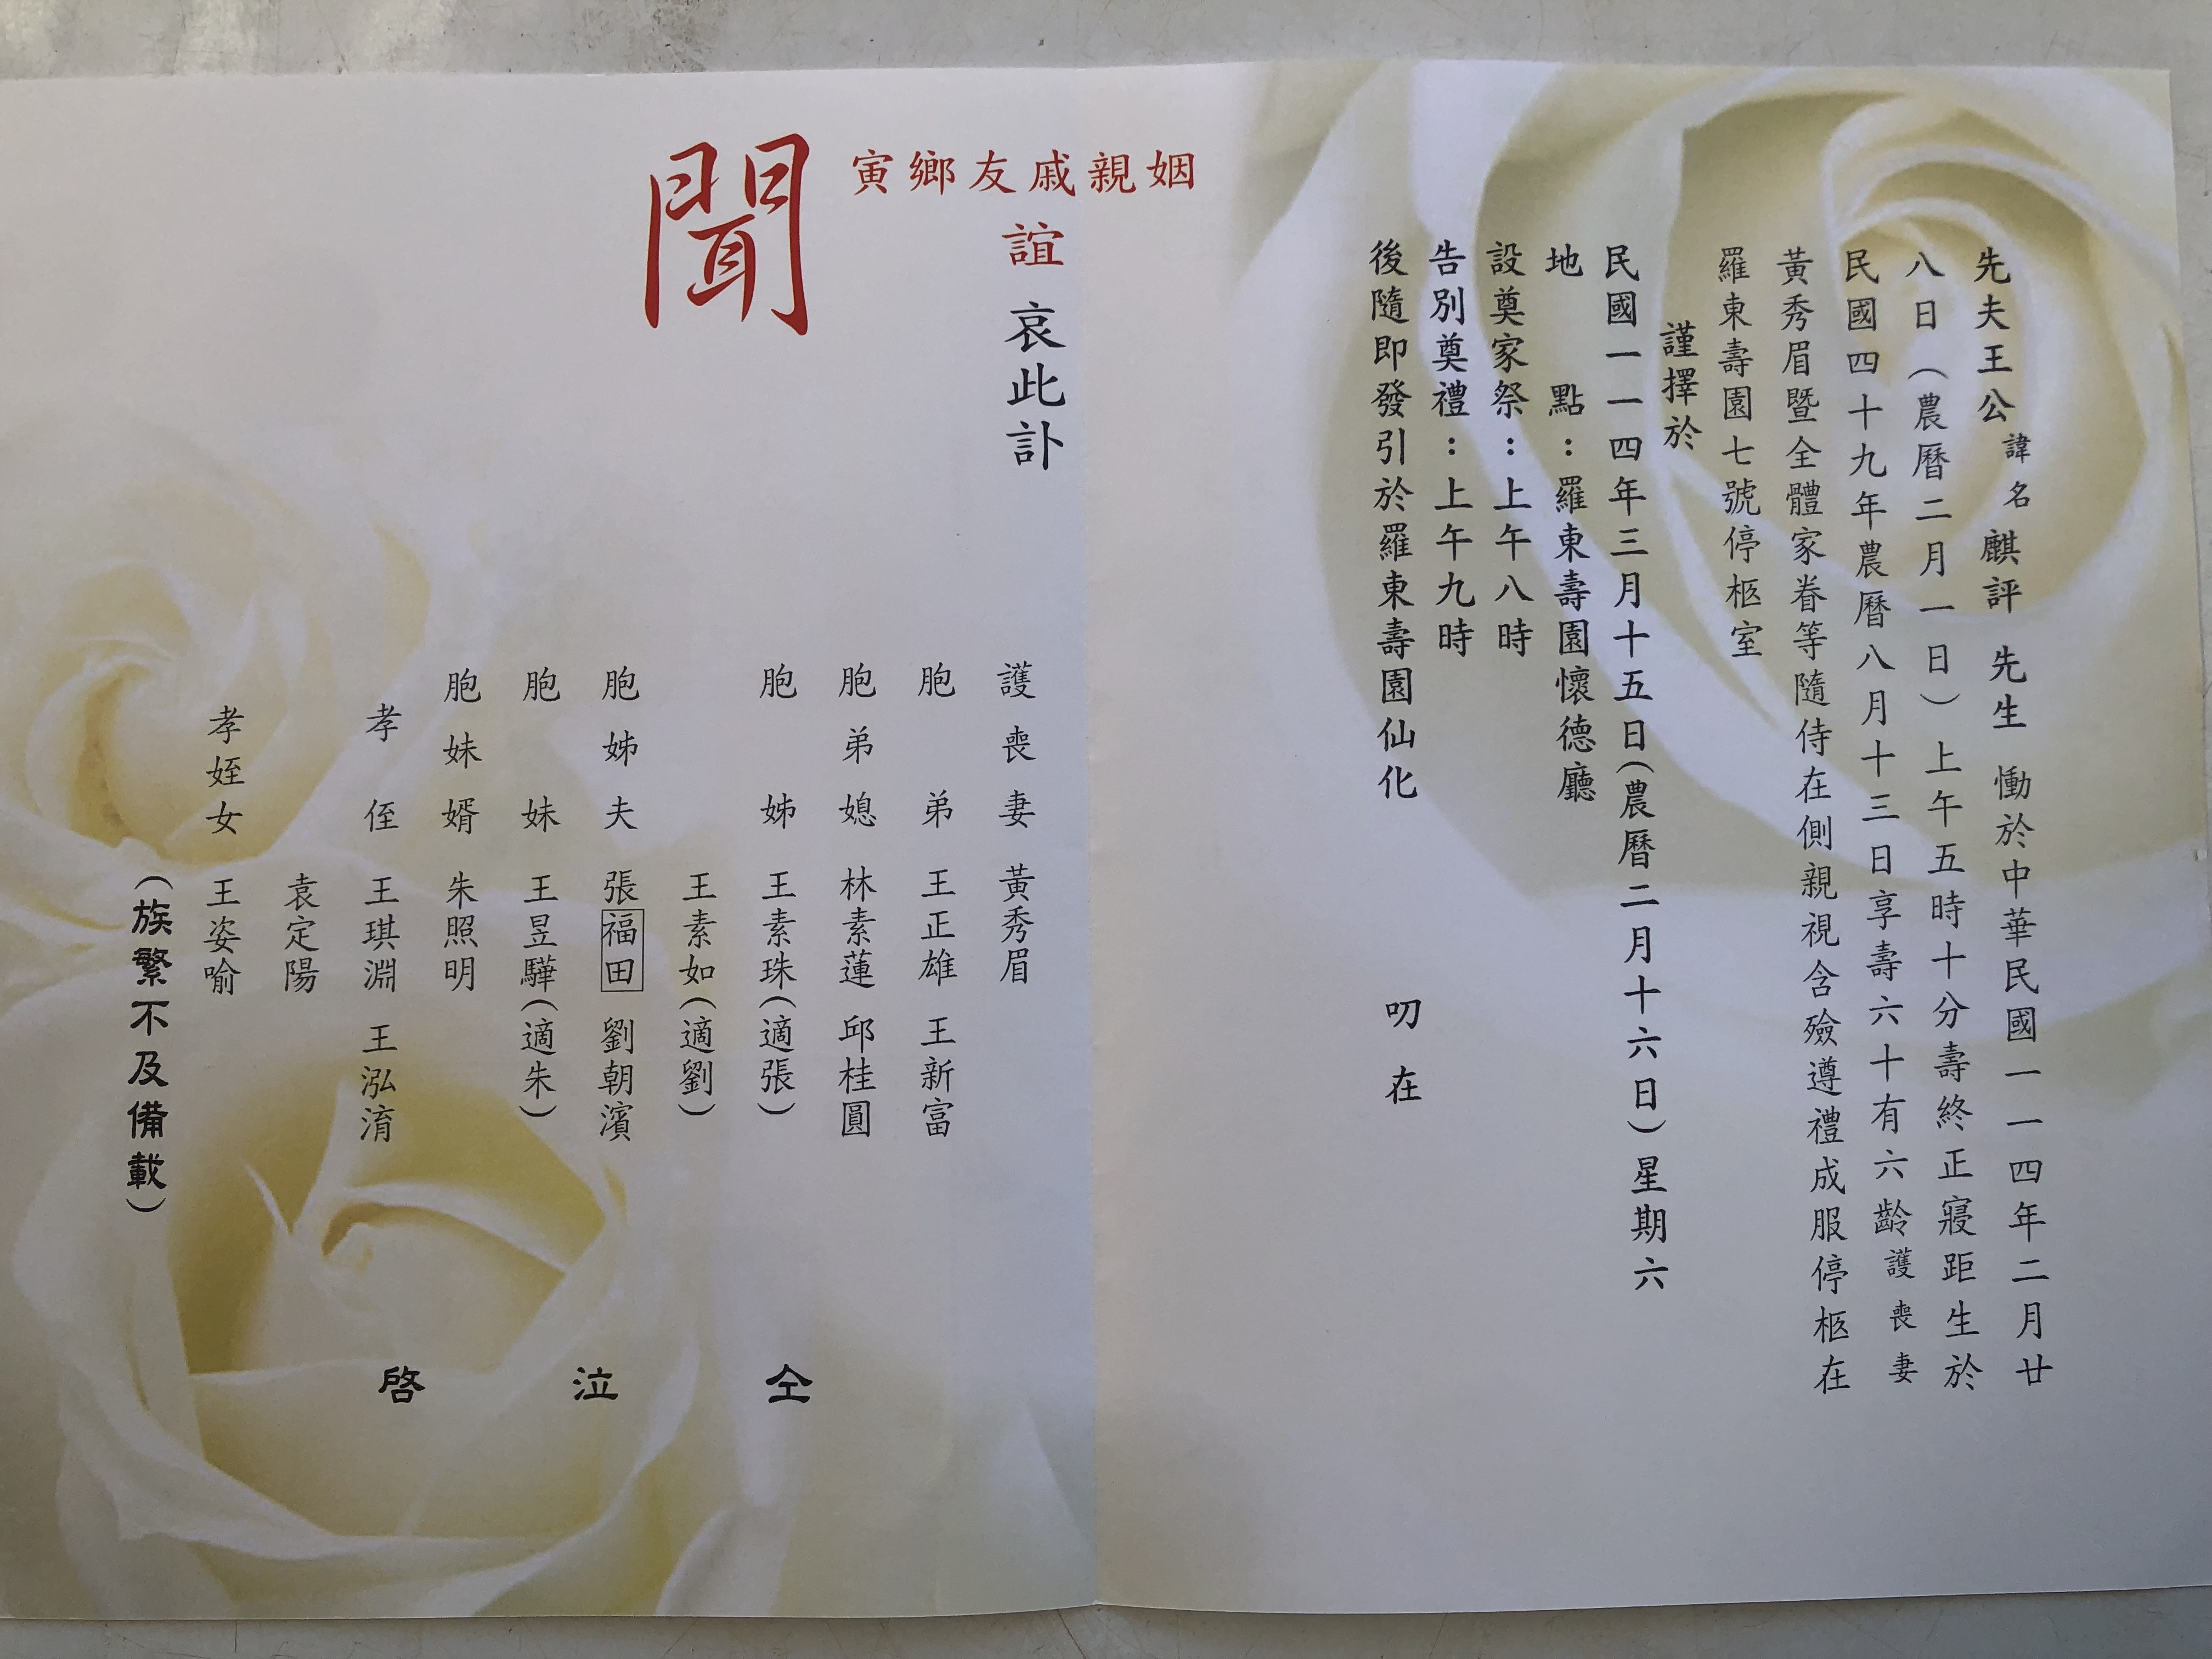 先夫王公諱名麒評 先生 慟於中華民國一一四年二月廿
八日（農曆二月一日）上午五時十分壽終正寢距生於
民國四十九年農曆八月十三日享壽六十有六齡護喪妻
黃秀眉暨全體家眷等隨侍在側親視含殮遵禮成服停柩在
羅東壽園七號停柩室
謹擇於
民國一一四年三月十五日（農曆二月十六日）星期六
地點：羅東壽園懷德廳
設奠家祭：上午八時
告別奠禮：上午九時
後隨即發引於羅東壽園仙化 叨在
姻親戚友鄉寅
誼 哀此訃
聞
護喪妻 黃秀眉
胞弟 王正雄 王新富
胞弟媳 林素蓮 邱桂圓
胞姊 王素珠（適張）
王素如（適劉）
胞姊夫 張福田 劉朝濱
胞妹 王昱驊（適朱）
胞妹婿 朱照明
孝侄 王琪淵 王泓淯
袁定陽
孝姪女 王姿喻
（族繁不及備載）
仝泣啓